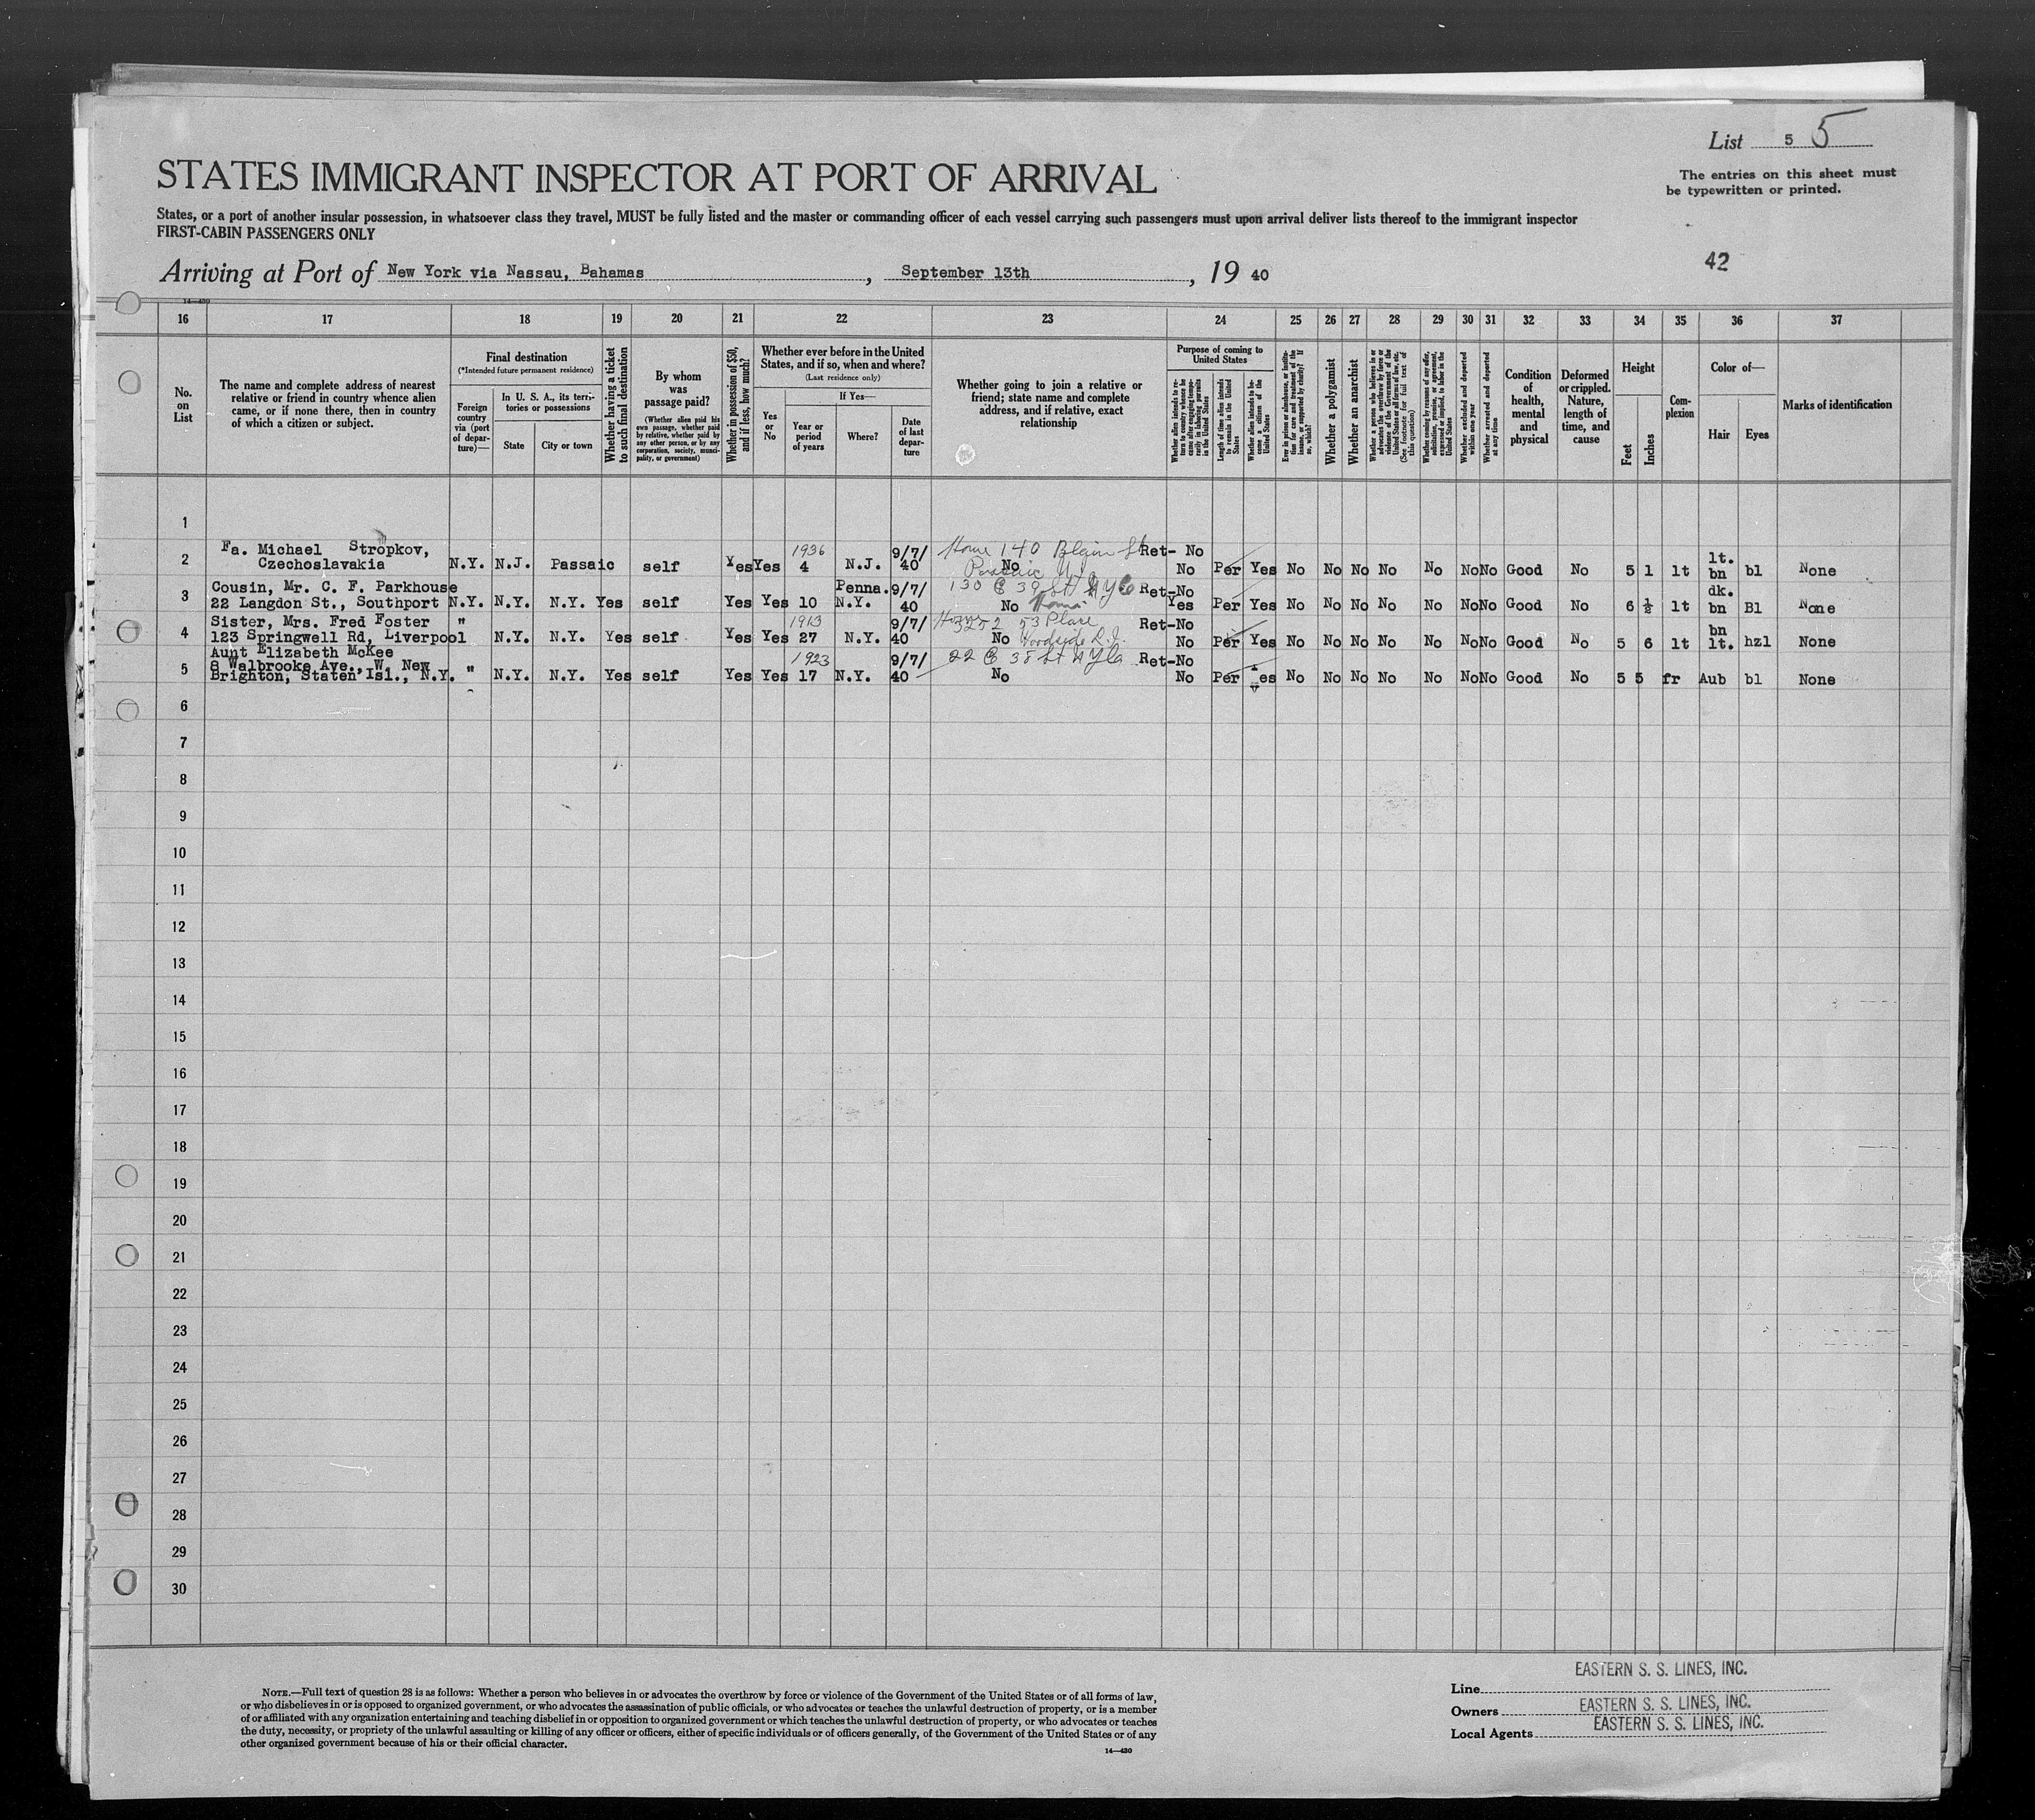 List 5 5
STATES IMMIGRANT INSPECTOR AT PORT OF ARRIVAL
The entries on this sheet must
be typewritten or printed.
States, or a port of another insular possession, in whatsoever class they travel, MUST be fully listed and the master or commanding officer of each vessel carrying such passengers must upon arrival deliver lists thereof to the immigrant inspector
FIRST-CABIN PASSENGERS ONLY
42
Arriving at Port of New York via Nassau, Bahamas, September 13th, 19 40
14—430
16 17 18 19 20 21 22 23 24 25 26 27 28 29 30 31 32 33 34 35 36 37
No. on List
The name and complete address of nearest
relative or friend in country whence alien
came, or if none there, then in country
of which a citizen or subject.
Final destination
(*Intended future permanent residence)
Foreign country via (port of departure)—
In U. S. A., its territories or possessions
State
City or town
Whether having a ticket to such final destination
By whom was passage paid?
(Whether alien paid his own passage, whether paid by relative, whether paid by any other person, or by any corporation, society, municipality, or government)
Whether in possession of $50, and if less, how much?
Whether ever before in the United States, and if so, when and where?
(Last residence only)
Yes or No
If Yes—
Year or period of years
Where?
Date of last departure
Whether going to join a relative or
friend; state name and complete
address, and if relative, exact
relationship
Purpose of coming to United States
Whether alien intends to return to country whence he came after engaging temporarily in laboring pursuits in the United States
Length of time alien intends to remain in the United States
Whether alien intends to become a citizen of the United States
Ever in prison or almshouse, or institution for care and treatment of the insane, or supported by charity? If so, which?
Whether a polygamist
Whether an anarchist
Whether a person who believes in or advocates the overthrow by force or violence of the Government of the United States or all forms of law, etc. (See footnote for full text of this question)
Whether coming by reason of any offer, solicitation, promise, or agreement, expressed or implied, to labor in the United States
Whether excluded and deported within one year
Whether arrested and deported at any time
Condition of health, mental and physical
Deformed or crippled. Nature, length of time, and cause
Height
Feet
Inches
Complexion
Color of—
Hair
Eyes
Marks of identification
1
2 Fa. Michael Stropkov, 1936 9/7/ Home 140 St Ret- No lt.
Czechoslavakia N.Y. N.J. Passaic self Yes Yes 4 N.J. 40 No Passaic NJ No Per Yes No No No No No No No Good No 5 1 lt bn bl None
3 Cousin, Mr. C. F. Parkhouse Penna. 9/7/ 130 E 39 St N Y C Ret-No dk.
22 Langdon St., Southport N.Y. N.Y. N.Y. Yes self Yes Yes 10 N.Y. 40 No Home Yes Per Yes No No No No No No No Good No 6 ½ lt bn Bl None
4 Sister, Mrs. Fred Foster " 1913 9/7/ Home 3252 53 Place Ret-No bn
123 Springwell Rd, Liverpool N.Y. N.Y. Yes self Yes Yes 27 N.Y. 40 No Woodside L.I. No Per Yes No No No No No No No Good No 5 6 lt lt. hzl None
5 Aunt Elizabeth McKee 1923 9/7/ 22 E 38 St N Y C Ret-No
8 Walbrooke Ave., W. New
Brighton, Staten Isl., N.Y. " N.Y. N.Y. Yes self Yes Yes 17 N.Y. 40 No No Per Yes No No No No No No No Good No 5 5 fr Aub bl None
6
7
8
9
10
11
12
13
14
15
16
17
18
19
20
21
22
23
24
25
26
27
28
29
30
NOTE.—Full text of question 28 is as follows: Whether a person who believes in or advocates the overthrow by force or violence of the Government of the United States or of all forms of law,
or who disbelieves in or is opposed to organized government, or who advocates the assassination of public officials, or who advocates or teaches the unlawful destruction of property, or is a member
of or affiliated with any organization entertaining and teaching disbelief in or opposition to organized government or which teaches the unlawful destruction of property, or who advocates or teaches
the duty, necessity, or propriety of the unlawful assaulting or killing of any officer or officers, either of specific individuals or of officers generally, of the Government of the United States or of any
other organized government because of his or their official character.
14—430
EASTERN S. S. LINES, INC.
Line
Owners EASTERN S. S. LINES, INC.
Local Agents EASTERN S. S. LINES, INC.